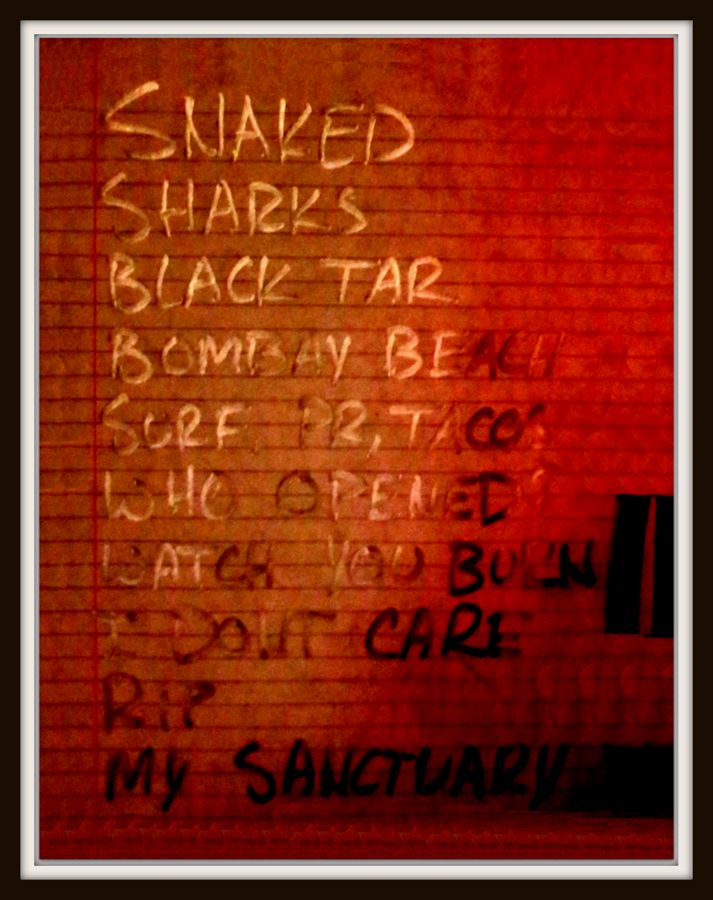 SNAKED
SHARKS
BLACK TAR
BOMBAY BEACH
SURF, PR, TACOS
WHO OPENED?
WATCH YOU BURN
I DONT CARE
RIP
MY SANCTUARY